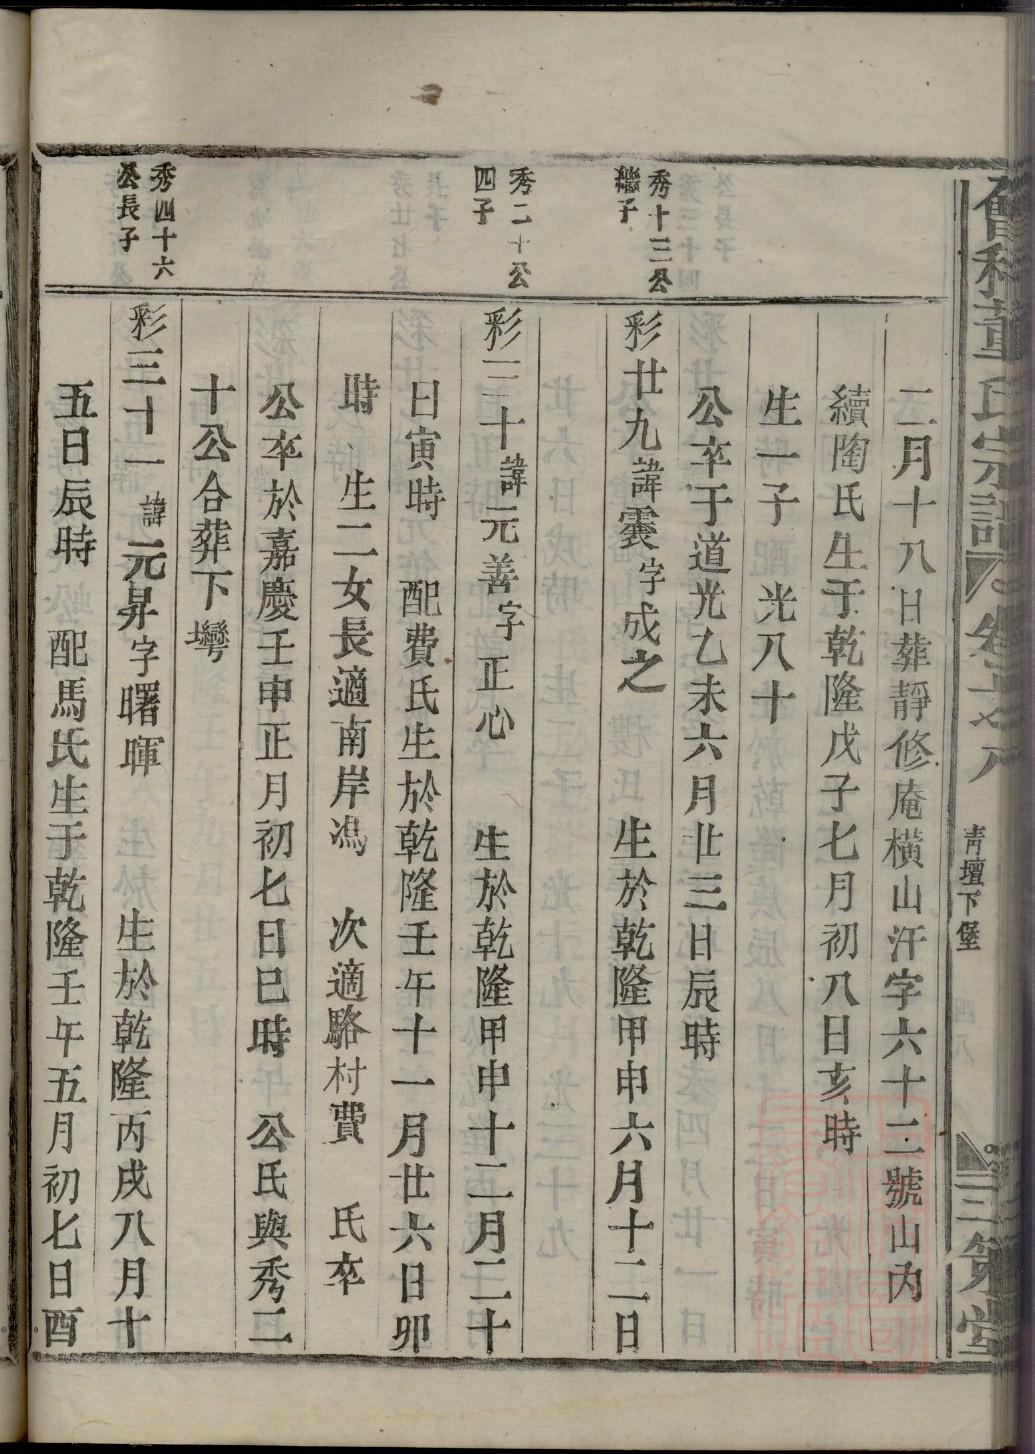 董氏宗譜
青壇下堡
三策堂
二月十八日葬靜修庵橫山汗字六十二號山內
續陶氏生于乾隆戊子七月初八日亥時
生一子 光八十
公卒于道光乙未六月廿三日辰時
秀十三公
繼子
彩廿九諱霙字成之 生於乾隆甲申六月十二日
秀二十公
四子
彩三十諱元善字正心 生於乾隆甲申十二月二十
日寅時 配費氏生於乾隆壬午十一月廿六日卯
時 生二女長適南岸馮 次適駱村費 氏卒
公卒於嘉慶壬申正月初七日巳時 公氏與秀二
十公合葬下灣
秀四十六
公長子
彩三十一諱元昇字曙暉 生於乾隆丙戌八月十
五日辰時 配馬氏生于乾隆壬午五月初七日酉